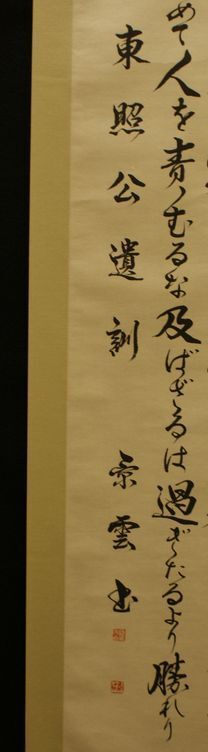 めて人を責むるな及ばざるは過ぎたるより勝れり
東照公遺訓 景雲書